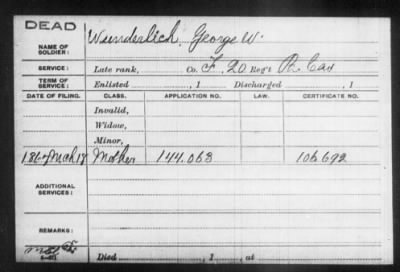 DEAD
NAME OF SOLDIER: Wunderlich, George W.
SERVICE: Late rank, Co. F, 20 Reg't Pa Cav
TERM OF SERVICE: Enlisted , 1 Discharged , 1
DATE OF FILING. CLASS. APPLICATION NO. LAW. CERTIFICATE NO.
Invalid,
Widow,
Minor,
1867 Mch 18 Mother 144.063 106692
ADDITIONAL SERVICES:
REMARKS:
Died , 1 , at